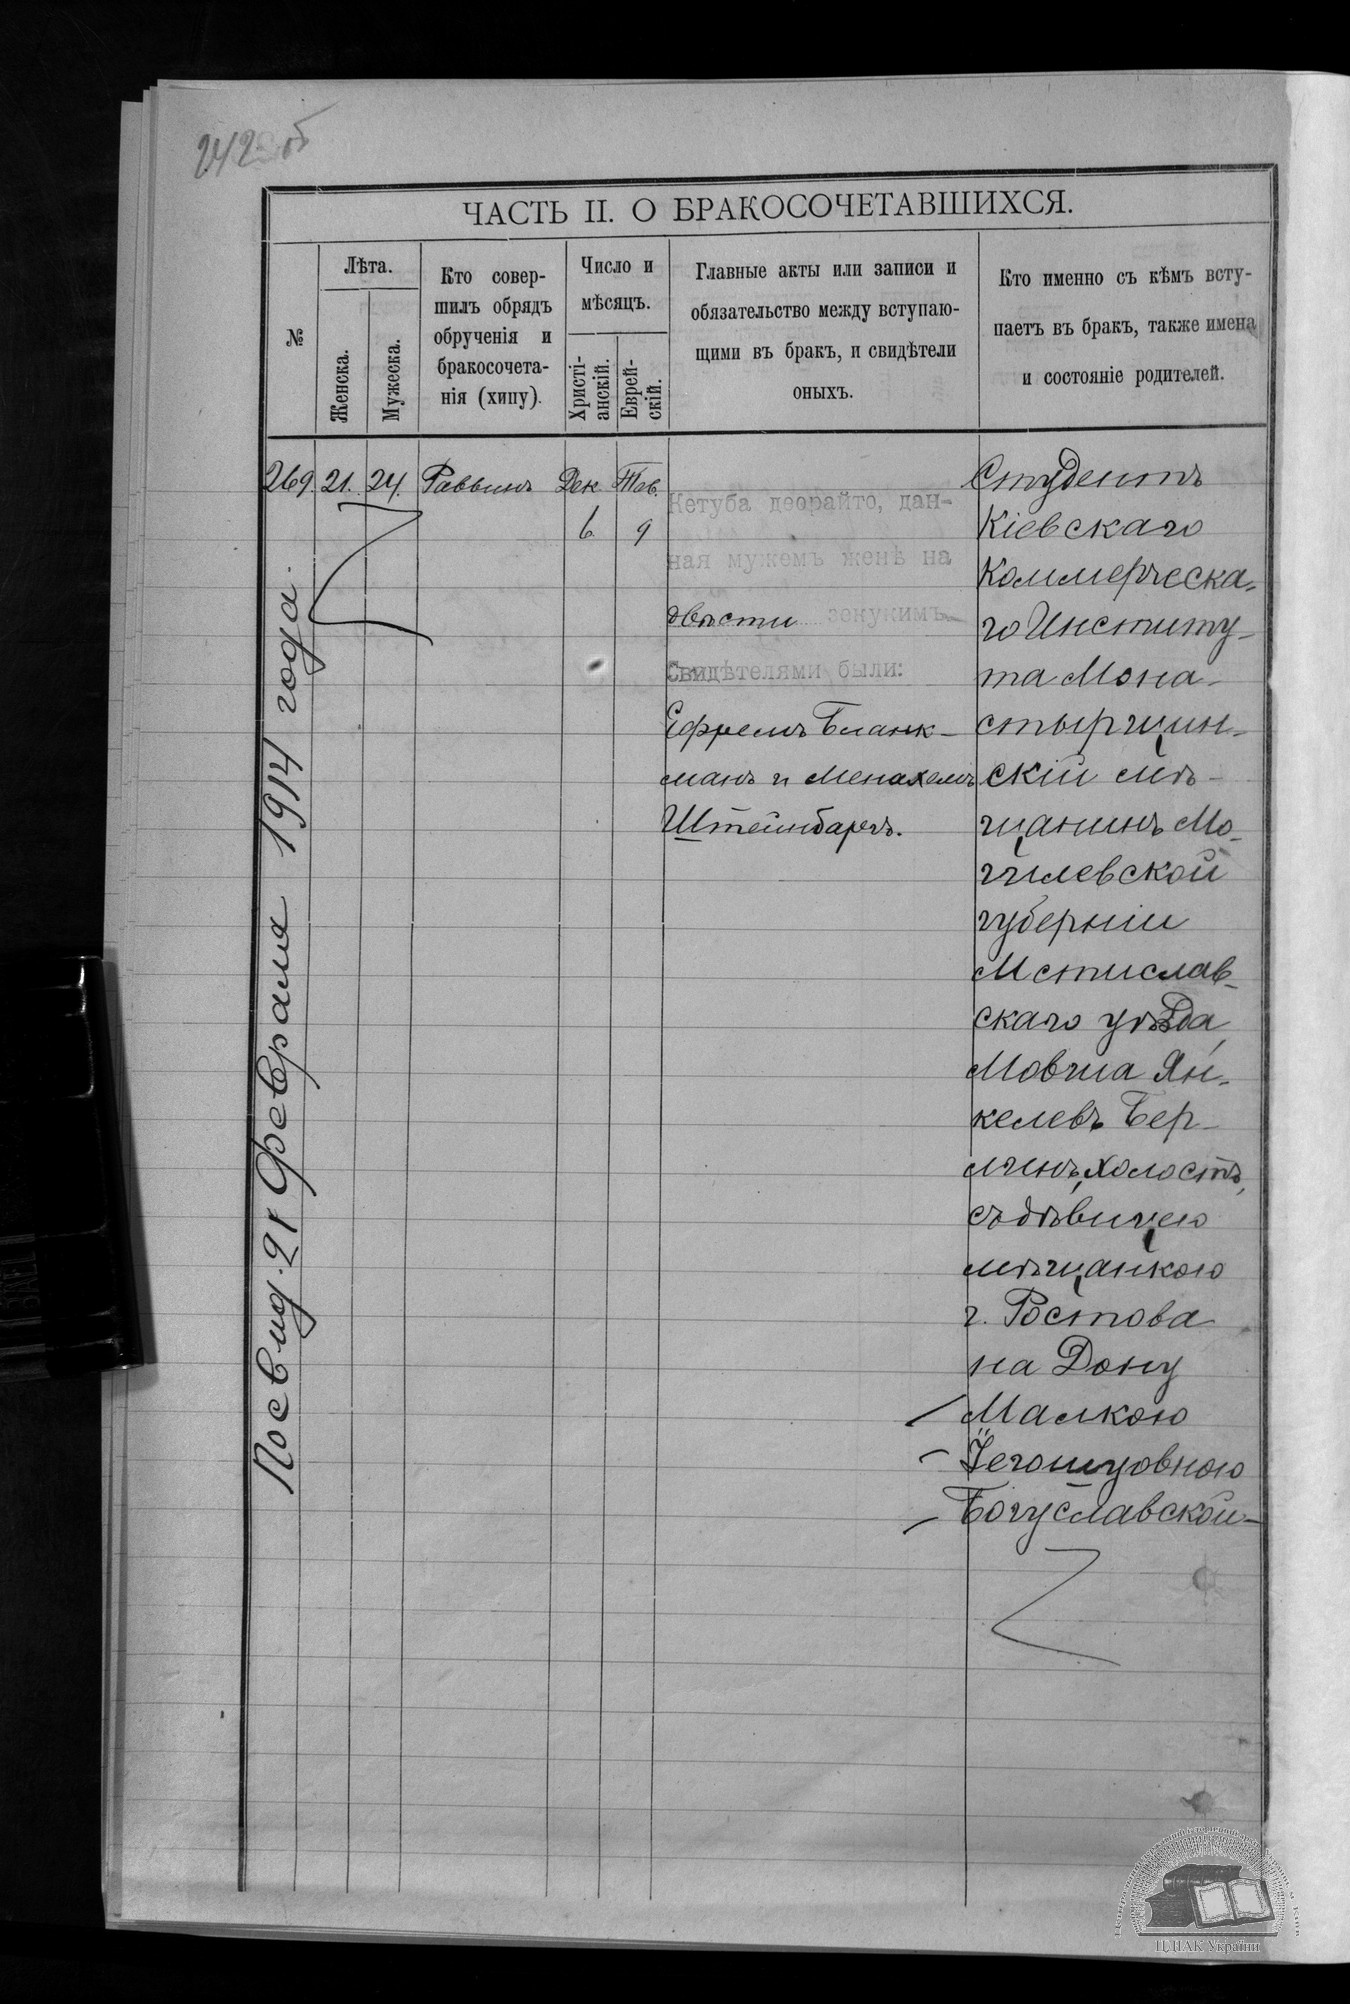 242 об
ЧАСТЬ II. О БРАКОСОЧЕТАВШИХСЯ.
№
Лѣта.
Женска.
Мужеска.
Кто совер-
шилъ обрядъ
обрученія и
бракосочета-
нія (хипу).
Число и
мѣсяцъ.
Христі-
анскій.
Еврей-
скій.
Главные акты или записи и
обязательство между вступаю-
щими въ бракъ, и свидѣтели
оныхъ.
Кто именно съ кѣмъ всту-
паетъ въ бракъ, также имена
и состояніе родителей.
269. 21. 24. Раввинъ Дек. Тев.
6 9
Кетуба деорайто, дан-
ная мужемъ женѣ на
двѣсти зекукимъ
Свидѣтелями были:
Ефремъ Бланк-
манъ и Менахемъ
Штейнбаргъ.
Студентъ
Кіевскаго
Коммерческа-
го Институ-
та Мона-
стырщин-
скій мѣ-
щанинъ Мо-
гилевской
губерніи
Мстислав-
скаго уѣзда,
Мовша Ян-
келевъ Бер-
линъ, холостъ,
съ дѣвицею
мѣщанкою
г. Ростова
на Дону
Малкою
Іегошуовною
Богуславской
Посвид. 21 Февраля 1914 года.
ЦДІАК України